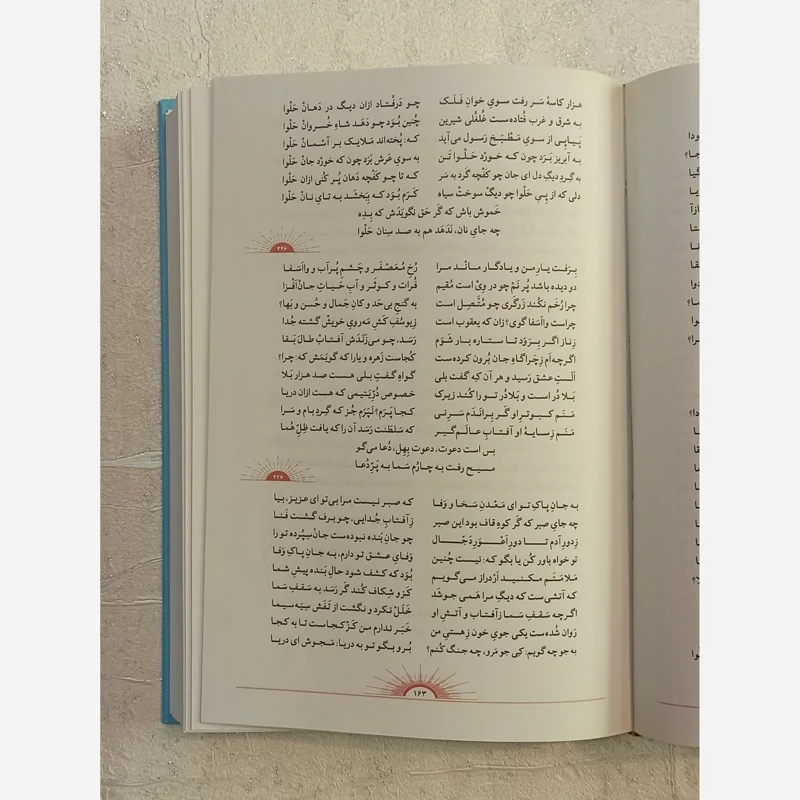 هزار کاسهٔ سَر رفت سویِ خوانِ فَلَک چو دَرفُتاد ازان دیگ در دَهانْ حَلْوا
به شرق و غرب فُتاده‌ست غُلغُلی شیرین چُنین بُوَد چو دَهَد شاهِ خُسروانْ حَلْوا
پَیاپِی از سویِ مَطْبَخْ رَسول می‌آید که: پُخته‌اند مَلایک بر آسْمانْ حَلْوا
به آبریز بَرَد چون که خورْد حَلْوا تَن به سویِ عَرش بَرَد چون که خورْد جانْ حَلْوا
به گِردِ دیگِ دل ای جان چو کَفْچه گَرد به سَر که تا چو کَفْچه دَهان پُر کُنی ازان حَلْوا
دلی که از پِیِ حَلْوا چو دیگْ سوخْتْ سیاه کَرَم بُوَد که بِبَخشَد به تایِ نانْ حَلْوا
خَموش باش که گَر حَق نگویَدَش که بِدِه
چه جایِ نان، نَدَهَد هم به صد سِنان حَلْوا
۲۲۶
بِرَفت یارِ من و یادگار مانْد مرا رُخِ مُعَصْفَر و چَشمِ پُرآب و وااَسَفا
دو دیده باشد پُر نَمْ چو در وِیْ است مُقیم فُرات و کوثَر و آبِ حَیاتِ جانْ‌اَفْزا
چرا رُخَم نکُند زَرگَری چو مُتَّصِل است به گنجِ بی‌حَد و کانِ جَمال و حُسن و بَها؟
چراست وااَسَفا گوی؟ زان که یعقوب است زِیوسُفِ کَشِ مَه‌رویِ خویشْ گشته جُدا
زِناز اگر بِرَوَد تا سِتاره بار شَوَم رَسَد، چو می‌زَنَدَش آفتابْ طالَ بَقا
اگرچه اَم زِچَراگاهِ جان بُرون کرده‌ست کُجاست زُهره و یارا که گویَمَش که: چرا؟
اَلَسْتِ عشق رَسید و هر آن که گفت بَلی گواهِ گفتِ بَلی هست صد هزار بَلا
بَلا دُر است و بَلادُر تو را کُند زیرَک خصوص دُرِّ یَتیمی که هست ازان دریا
مَنَم کبوترِ او گَر بِرانَدَم سَر نی کجا پَرَم؟ نَپَرَم جُز که گِردِ بام و سَرا
مَنَم زِسایهٔ او آفتابِ عالَم‌گیر که سَلطَنَت رَسَد آن را که یافت ظِلِّ هُما
بس است دعوت، دعوت بِهِل، دُعا می‌گو
مسیح رفت به چارُم سَما به پَرِّ دُعا
۲۲۷
به جانِ پاکِ تو ای مَعْدنِ سَخا و وَفا که صبر نیست مرا بی‌تو ای عزیز، بیا
چه جایِ صبر که گَر کوهِ قاف بود این صبر زِآفتابِ جُدایی، چو برف گشت فَنا
زِدورِ آدم تا دورِ اَعْوَرِ دَجّال چو جانِ بَنده نبوده‌ست جانْ سِپُرده تو را
تو خواه باور کُن یا بگو که: نیست چُنین وَفایِ عشقِ تو دارم، به جانِ پاکِ وَفا
مَلامَتَم مکُنید اَرْ دراز می‌گویم بُوَد که کَشف شود حالِ بَنده پیشِ شما
که آتشی‌ست که دیگِ مرا هَمی جوشَد کَزو شِکاف کُند گَر رَسَد به سَقفِ سَما
اگرچه سَقفِ سَما زآفتاب و آتشِ او خَلَلْ نکرد و نگشت از تَفَش سِیَه سیما
رَوان شُده‌ست یکی جویِ خون زِهستیِ من خَبَر ندارم من کَزْ کجاست تا به کجا
به جو چه گویم: کِی جو مَرو، چه جنگ کُنم؟ بُرو بگو تو به دریا: مَجوش ای دریا
۱۶۳